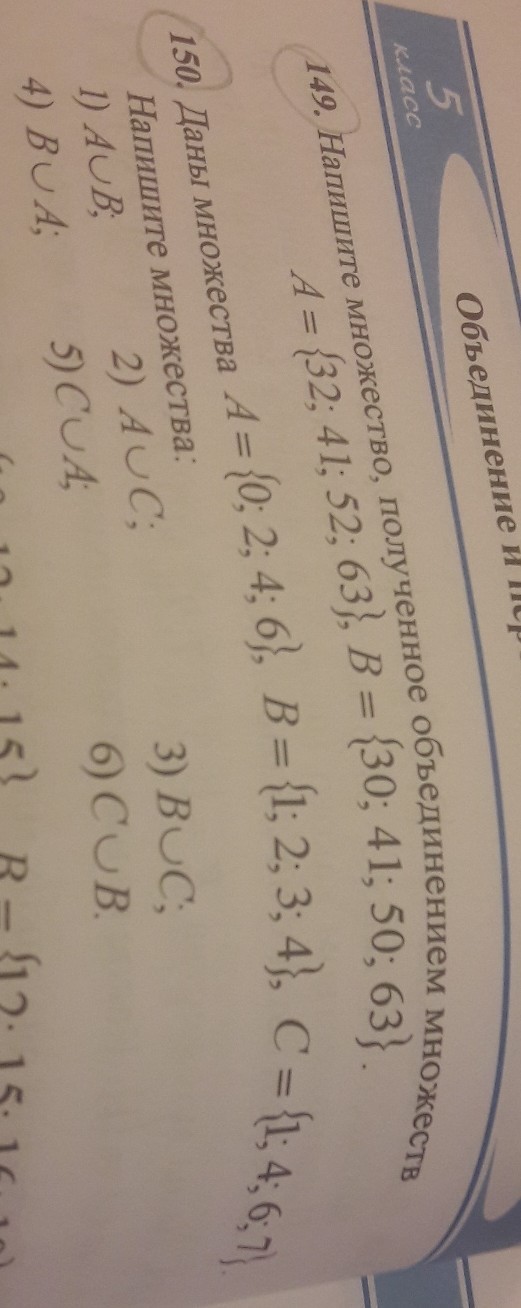 5
класс
Объединение и пер
149. Напишите множество, полученное объединением множеств
A = {32; 41; 52; 63}, B = {30; 41; 50; 63}.
150. Даны множества A = {0; 2; 4; 6}, B = {1; 2; 3; 4}, C = {1; 4; 6; 7}.
Напишите множества:
1) A∪B; 2) A∪C; 3) B∪C;
4) B∪A; 5) C∪A; 6) C∪B.
14; 15} B = {12; 15; 16;